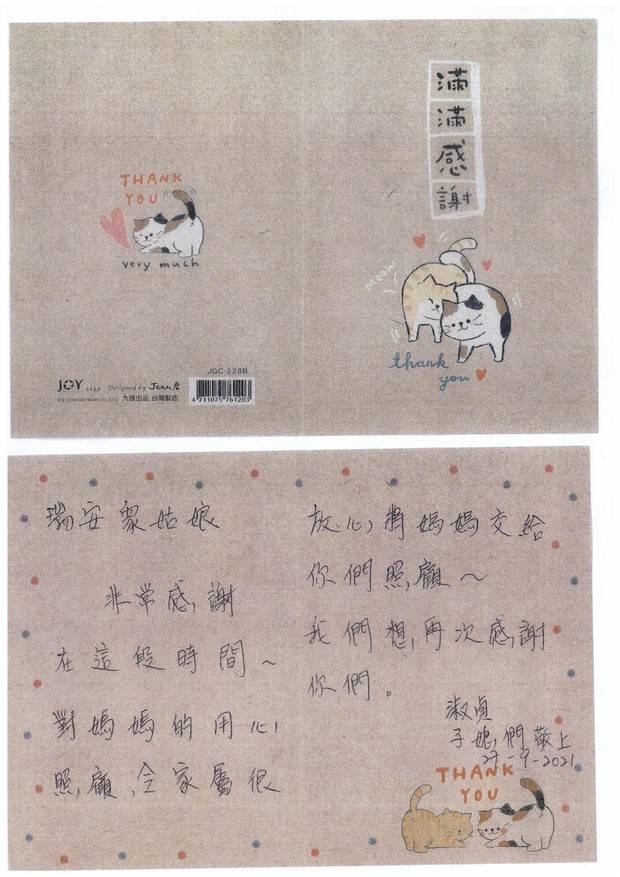 THANK
YOU
very much
JGC-228B
JOY
Designed by Jean
九達出品.台灣製造
4 711075 761203
滿
滿
感
謝
meow
thank
you
瑞安眾姑娘
非常感謝
在這段時間～
對媽媽的用心
照顧,令家屬很
放心,將媽媽交給
你們照顧～
我們想,再次感謝
你們。
淑貞
子媳們敬上
27-9-2021
THANK
YOU